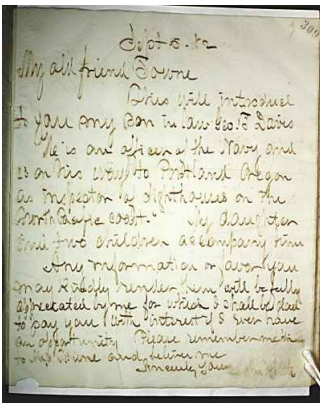 304
Sept 5. 82
My old friend Towne
This will introduce
to you my son in law Geo. T. Davis
He is an officer of the Navy and
is on his way to Portland Oregon
as inspector of lighthouses on the
North Pacific coast. My daughter
and two children accompany him
Any information or favor you
may kindly render him will be fully
appreciated by me for which I shall be glad
to pay you with interest if I ever have
an opportunity Please remember me
to Mrs Towne and believe me
Sincerely Yours